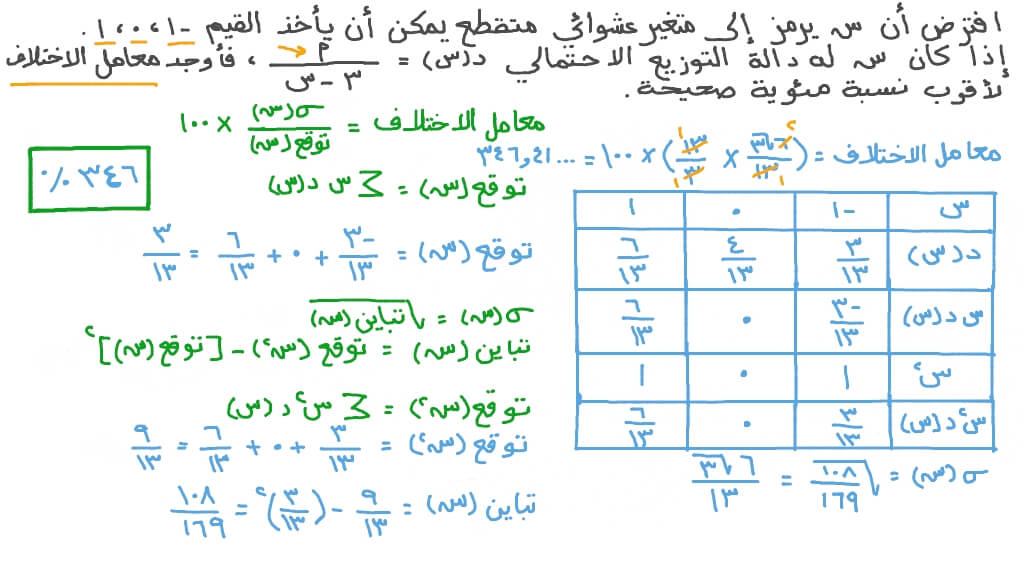 افترض أن س يرمز إلى متغير عشوائي متقطع يمكن أن يأخذ القيم -١، ٠، ١.
إذا كان س له دالة التوزيع الاحتمالي د(س) = م / (٣ - س)، فأوجد معامل الاختلاف
لأقرب نسبة مئوية صحيحة.
معامل الاختلاف = σ(س) / توقع(س) × ١٠٠
معامل الاختلاف = (٦√٣ / ١٣ × ١٣ / ٣) × ١٠٠ = ٣٤٦٫٤١...
١ ٢ ١ ١
٣٤٦ ٪
توقع (س) = ∑ س د(س)
توقع (س) = -٣/١٣ + ٠ + ٦/١٣ = ٣/١٣
σ(س) = √تباين (س)
تباين (س) = توقع (س٢) - [توقع (س)]٢
توقع (س٢) = ∑ س٢ د(س)
توقع (س٢) = ٣/١٣ + ٠ + ٦/١٣ = ٩/١٣
تباين (س) = ٩/١٣ - (٣/١٣)٢ = ١٠٨/١٦٩
س -١ ٠ ١
د(س) ٣/١٣ ٤/١٣ ٦/١٣
س د(س) -٣/١٣ ٠ ٦/١٣
س٢ ١ ٠ ١
س٢ د(س) ٣/١٣ ٠ ٦/١٣
σ(س) = √(١٠٨/١٦٩) = ٦√٣ / ١٣